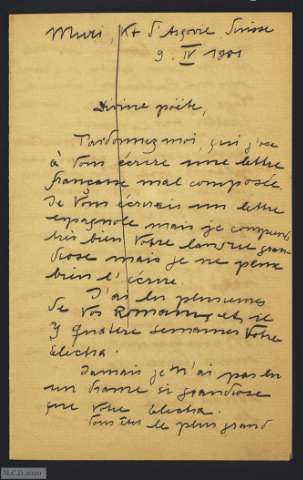 Muri, Kt d'Argovie Suisse
9. IV 1901
Divine poëte,
Pardonnez moi, si j'ose
à Vous écrire une lettre
française mal composée.
Je Vous écrivais un lettre
espagnole mais je comprends
très bien Votre langue gran
diose mais je ne peux
bien l'écrire.
J'ai lu plusieurs
de Vos Romans, et il
y quatre semaines Votre
Electra.
Jamais je n'ai pas lu
un drame si grandiose
que Votre Electra.
Vous êtes le plus grand
M.C.D. 2020